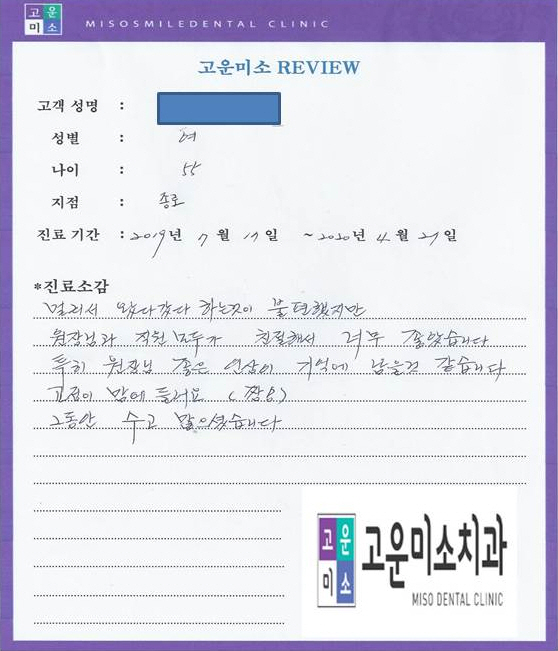 고운
미소
MISOSMILEDENTAL CLINIC
고운미소 REVIEW
고객 성명 :
성별 : 여
나이 : 55
지점 : 종로
진료 기간 : 2019년 7월 17일 ~2020년 4월 27일
*진료소감
멀리서 왔다갔다 하는것이 불편했지만
원장님과 직원 모두가 친절해서 너무 좋았습니다
특히 원장님 좋은 인상이 기억에 남을것 같습니다
교정이 맘에 들어요 (짱요)
그동안 수고 많으셨습니다
고운
미소
고운미소치과
MISO DENTAL CLINIC